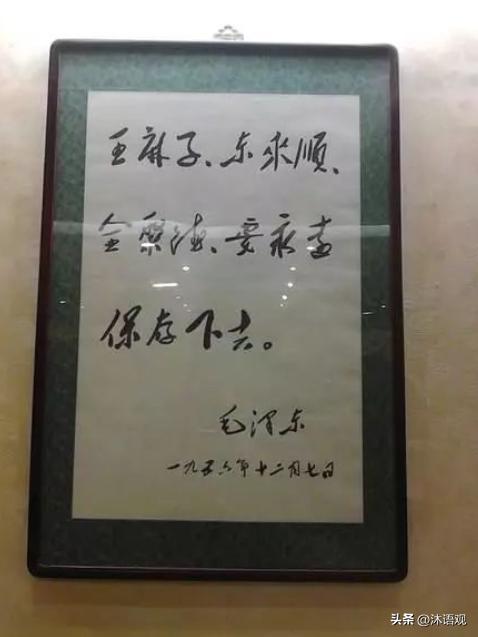 王麻子、东來順、
全聚德、要永远
保存下去。
毛泽东
一九五六年十二月七日
头条 @沐语观